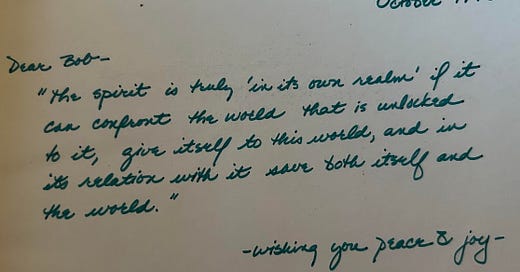 October
Dear Bob-
"The spirit is truly 'in its own realm' if it
can confront the world that is unlocked
to it, give itself to this world, and in
its relation with it save both itself and
the world."
-wishing you peace & joy-